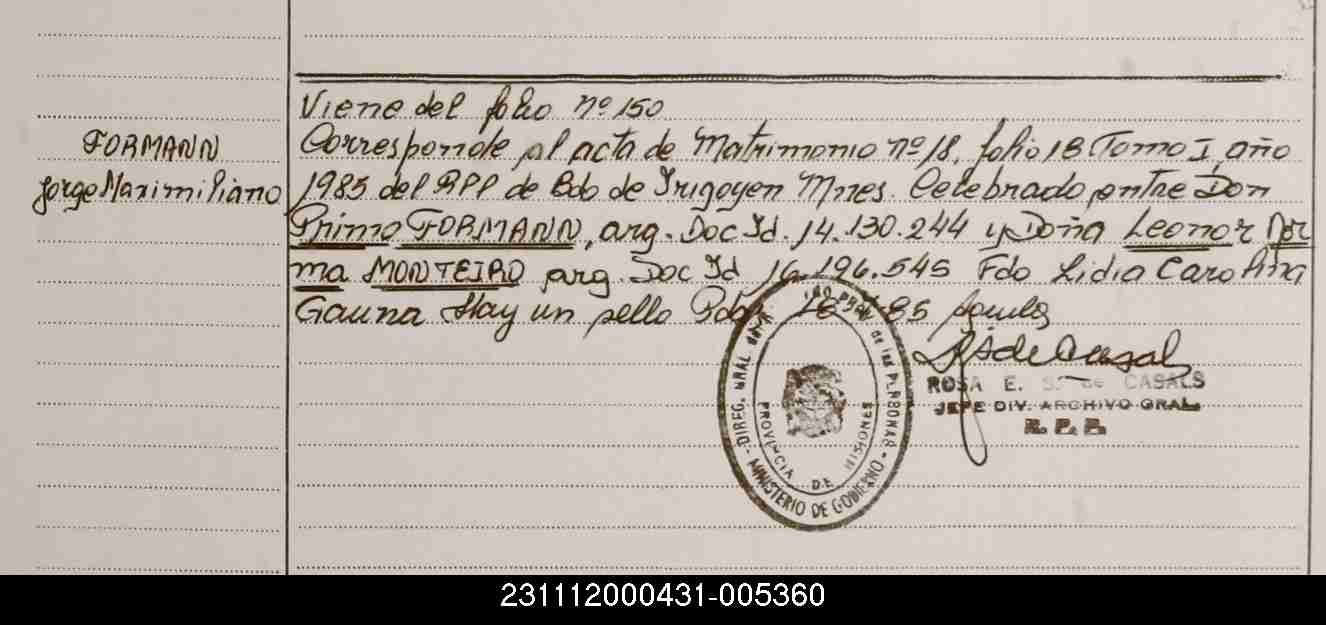 Viene del folio nº 150
FORMANN
Corresponde al acta de Matrimonio nº 18, folio 18 Tomo I, año
Jorge Maximiliano
1985 del RPP de Bdo de Irigoyen Mnes. Celebrado entre Don
Primo FORMANN, arg. Doc Id. 14.130.244 y Doña Leonor Nor
ma MONTEIRO arg. Doc Id 16.196.545 Fdo Lidia Carolina
Gauna Hay un sello Pdas 85
ROSA E. S. de CASALS
JEFE DIV. ARCHIVO GRAL.
R. P. P.
DIREC. GRAL de las PERSONAS
MINISTERIO DE GOBIERNO
PROVINCIA DE MISIONES
231112000431-005360